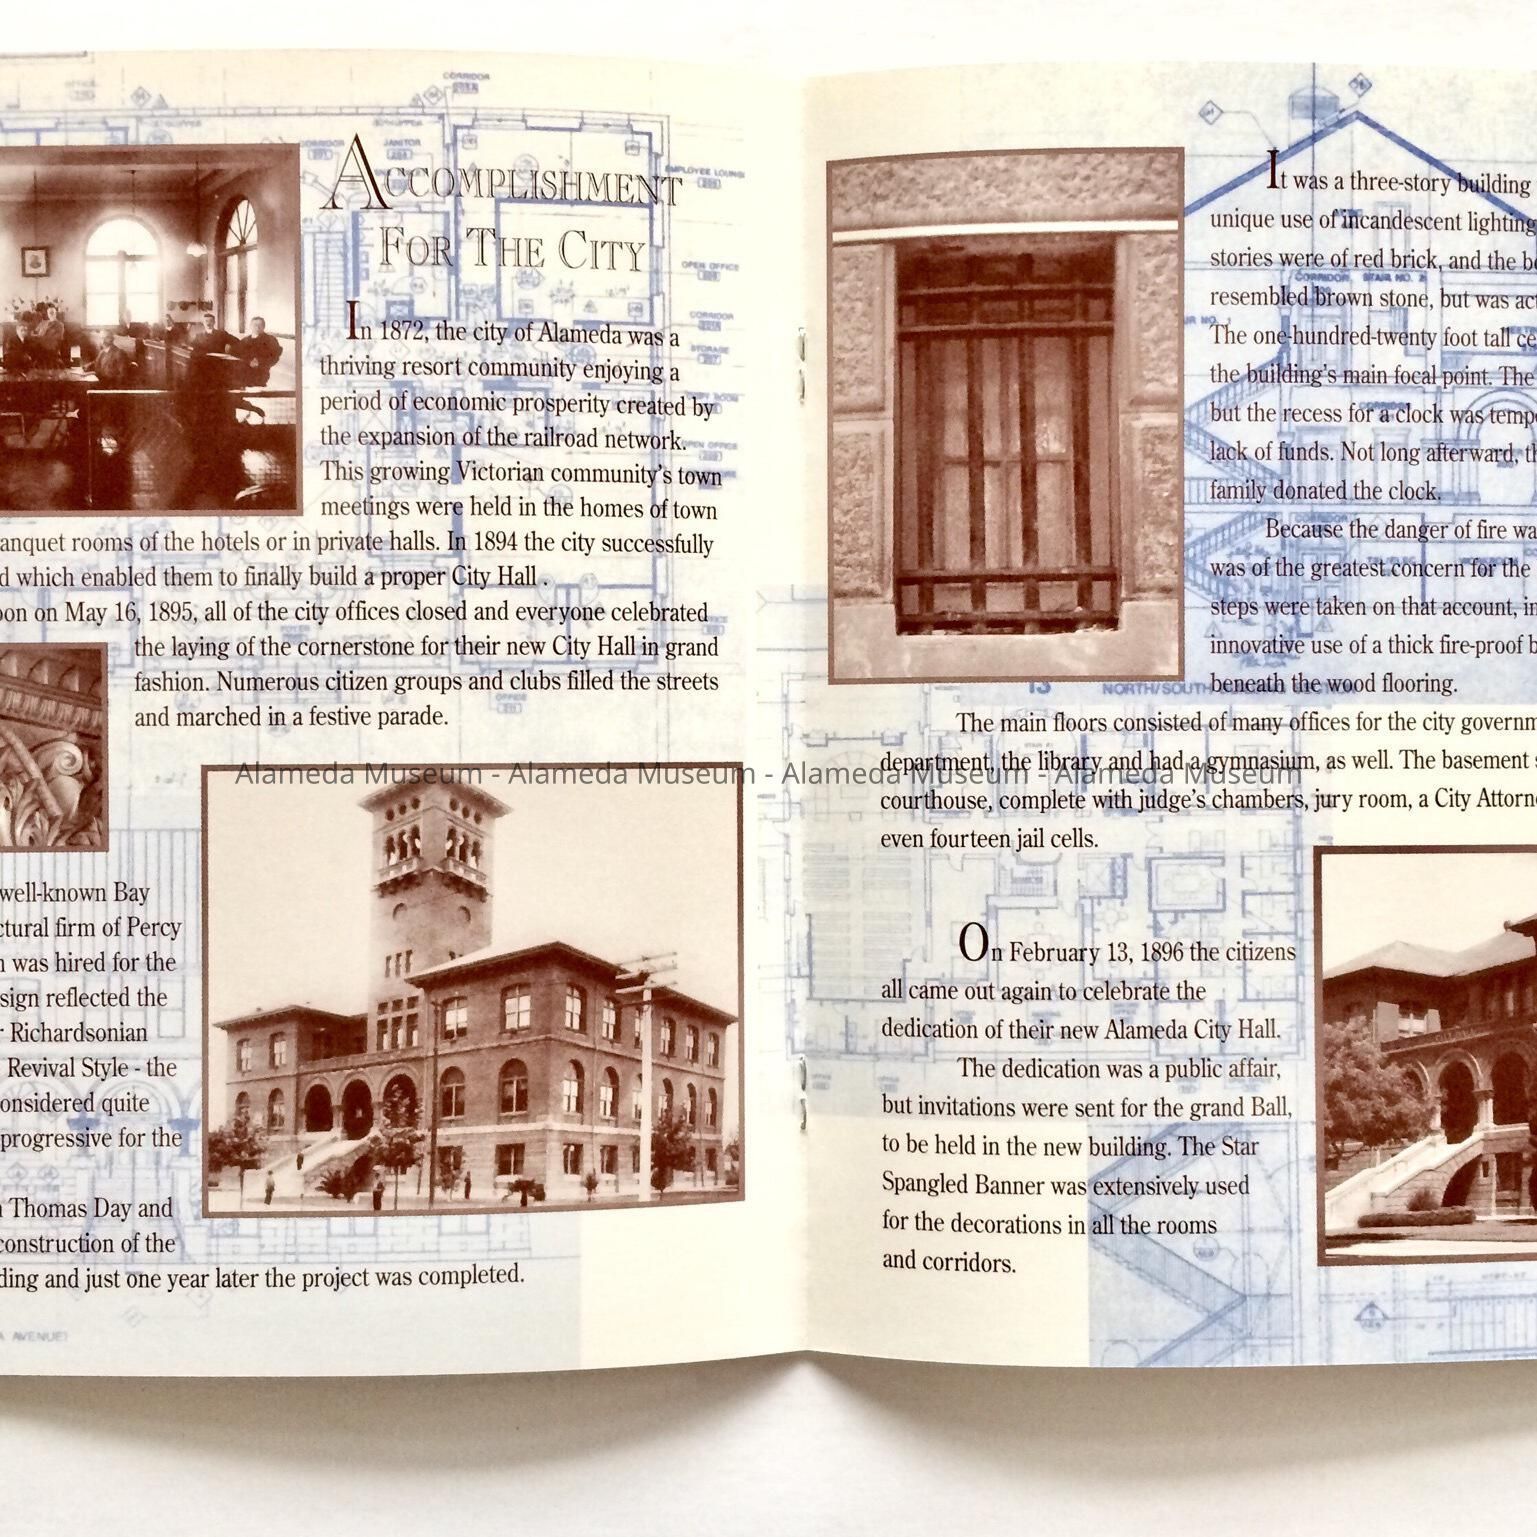 ACCOMPLISHMENT
FOR THE CITY
In 1872, the city of Alameda was a
thriving resort community enjoying a
period of economic prosperity created by
the expansion of the railroad network.
This growing Victorian community's town
meetings were held in the homes of town
anquet rooms of the hotels or in private halls. In 1894 the city successfully
d which enabled them to finally build a proper City Hall .
oon on May 16, 1895, all of the city offices closed and everyone celebrated
the laying of the cornerstone for their new City Hall in grand
fashion. Numerous citizen groups and clubs filled the streets
and marched in a festive parade.
well-known Bay
ctural firm of Percy
n was hired for the
sign reflected the
r Richardsonian
Revival Style - the
onsidered quite
progressive for the
n Thomas Day and
construction of the
ding and just one year later the project was completed.
A AVENUE)
It was a three-story building
unique use of incandescent lighting
stories were of red brick, and the b
resembled brown stone, but was ac
The one-hundred-twenty foot tall ce
the building's main focal point. The
but the recess for a clock was temp
lack of funds. Not long afterward, th
family donated the clock.
Because the danger of fire wa
was of the greatest concern for the
steps were taken on that account, in
innovative use of a thick fire-proof b
beneath the wood flooring.
The main floors consisted of many offices for the city governm
department, the library and had a gymnasium, as well. The basement s
courthouse, complete with judge's chambers, jury room, a City Attorn
even fourteen jail cells.
On February 13, 1896 the citizens
all came out again to celebrate the
dedication of their new Alameda City Hall.
The dedication was a public affair,
but invitations were sent for the grand Ball,
to be held in the new building. The Star
Spangled Banner was extensively used
for the decorations in all the rooms
and corridors.
CORRIDOR
CORRIDOR
JANITOR
EMPLOYEE LOUNGE
OPEN OFFICE
CORRIDOR
OPEN OFFICE
OFFICE
CORRIDOR
STAIR NO. 2
13
NORTH/SOUTH
Alameda Museum - Alameda Museum - Alameda Museum - Alameda Museum